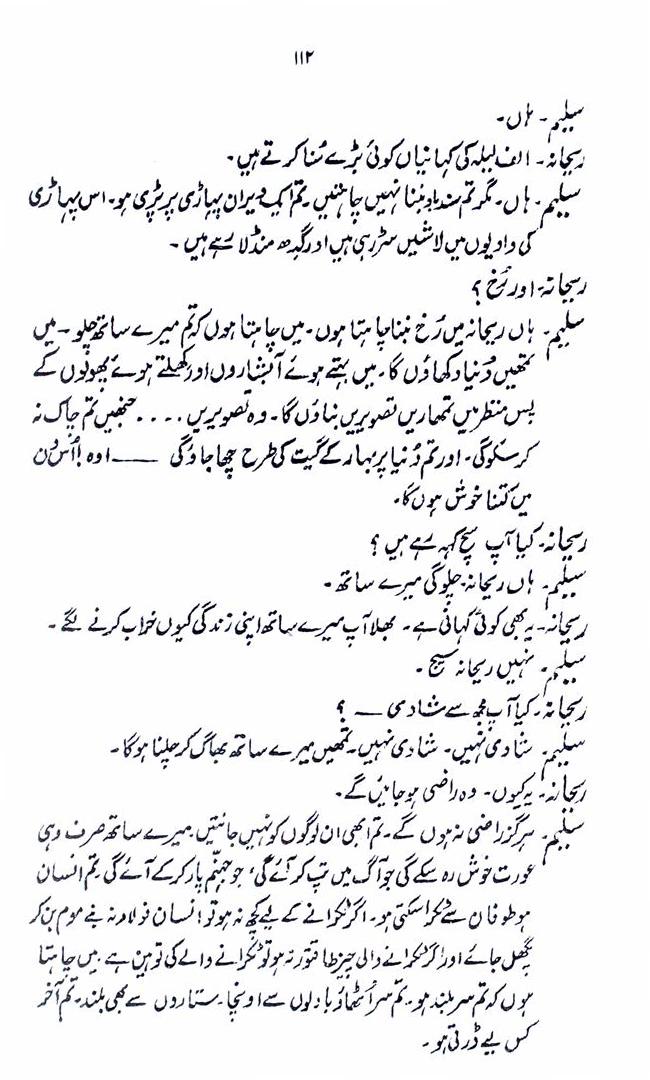 ۱۱۲
سلیم۔ ہاں۔
ریحانہ۔ الف لیلہ کی کہانیاں کوئی بڑے سُنا کرتے ہیں۔
سلیم۔ ہاں۔ مگر تم سندباد بننا نہیں چاہتیں۔ تم ایک ویران پہاڑی پر پڑی ہو۔ اس پہاڑی
کی وادیوں میں لاشیں سڑ رہی ہیں اور گِدھ منڈلا رہے ہیں۔
ریحانہ۔ اور رُخ ؟
سلیم۔ ہاں ریحانہ میں رُخ بننا چاہتا ہوں۔ میں چاہتا ہوں کہ تم میرے ساتھ چلو ۔ میں
تمھیں دُنیا دکھاؤں گا۔ میں بہتے ہوئے آبشاروں اور کھِلتے ہوئے پھولوں کے
پس منظر میں تمھاری تصویریں بناؤں گا۔ وہ تصویریں .... جنھیں تم چاک نہ
کر سکوگی۔ اور تم دُنیا پر بہار کے گیت کی طرح چھا جاؤ گی ــــ اوہ! اُس دن
میں کتنا خوش ہوں گا۔
ریحانہ۔ کیا آپ سچ کہہ رہے ہیں ؟
سلیم۔ ہاں ریحانہ چلو گی میرے ساتھ۔
ریحانہ۔ یہ بھی کوئی کہانی ہے۔ بھلا آپ میرے ساتھ اپنی زندگی کیوں خراب کرنے لگے۔
سلیم۔ نہیں ریحانہ سچ ۔
ریحانہ۔ کیا آپ مجھ سے شادی ــ ؟
سلیم۔ شادی نہیں۔ شادی نہیں۔ تمھیں میرے ساتھ بھاگ کر چلنا ہوگا۔
ریحانہ۔ یہ کیوں۔ وہ راضی ہو جائیں گے۔
سلیم۔ ہرگز راضی نہ ہوں گے۔ تم ابھی ان لوگوں کو نہیں جانتیں۔ میرے ساتھ صرف وہی
عورت خوش رہ سکے گی جو آگ میں تپ کر آئے گی، جو جہنّم پار کر کے آئے گی۔ تم انسان
ہو طوفان سے ٹکرا سکتی ہو۔ اگر ٹکرانے کے لیے کچھ نہ ہو تو انسان فولاد نہ بنے موم بن کر
پگھل جائے اور اگر ٹکرانے والی چیز طاقتور نہ ہو تو ٹکرانے والے کی توہین ہے۔ میں چاہتا
ہوں کہ تم سر بلند ہو۔ تم سر اُٹھاؤ بادلوں سے اونچا۔ ستاروں سے بھی بلند۔ تم آخر
کس لیے ڈرتی ہو۔